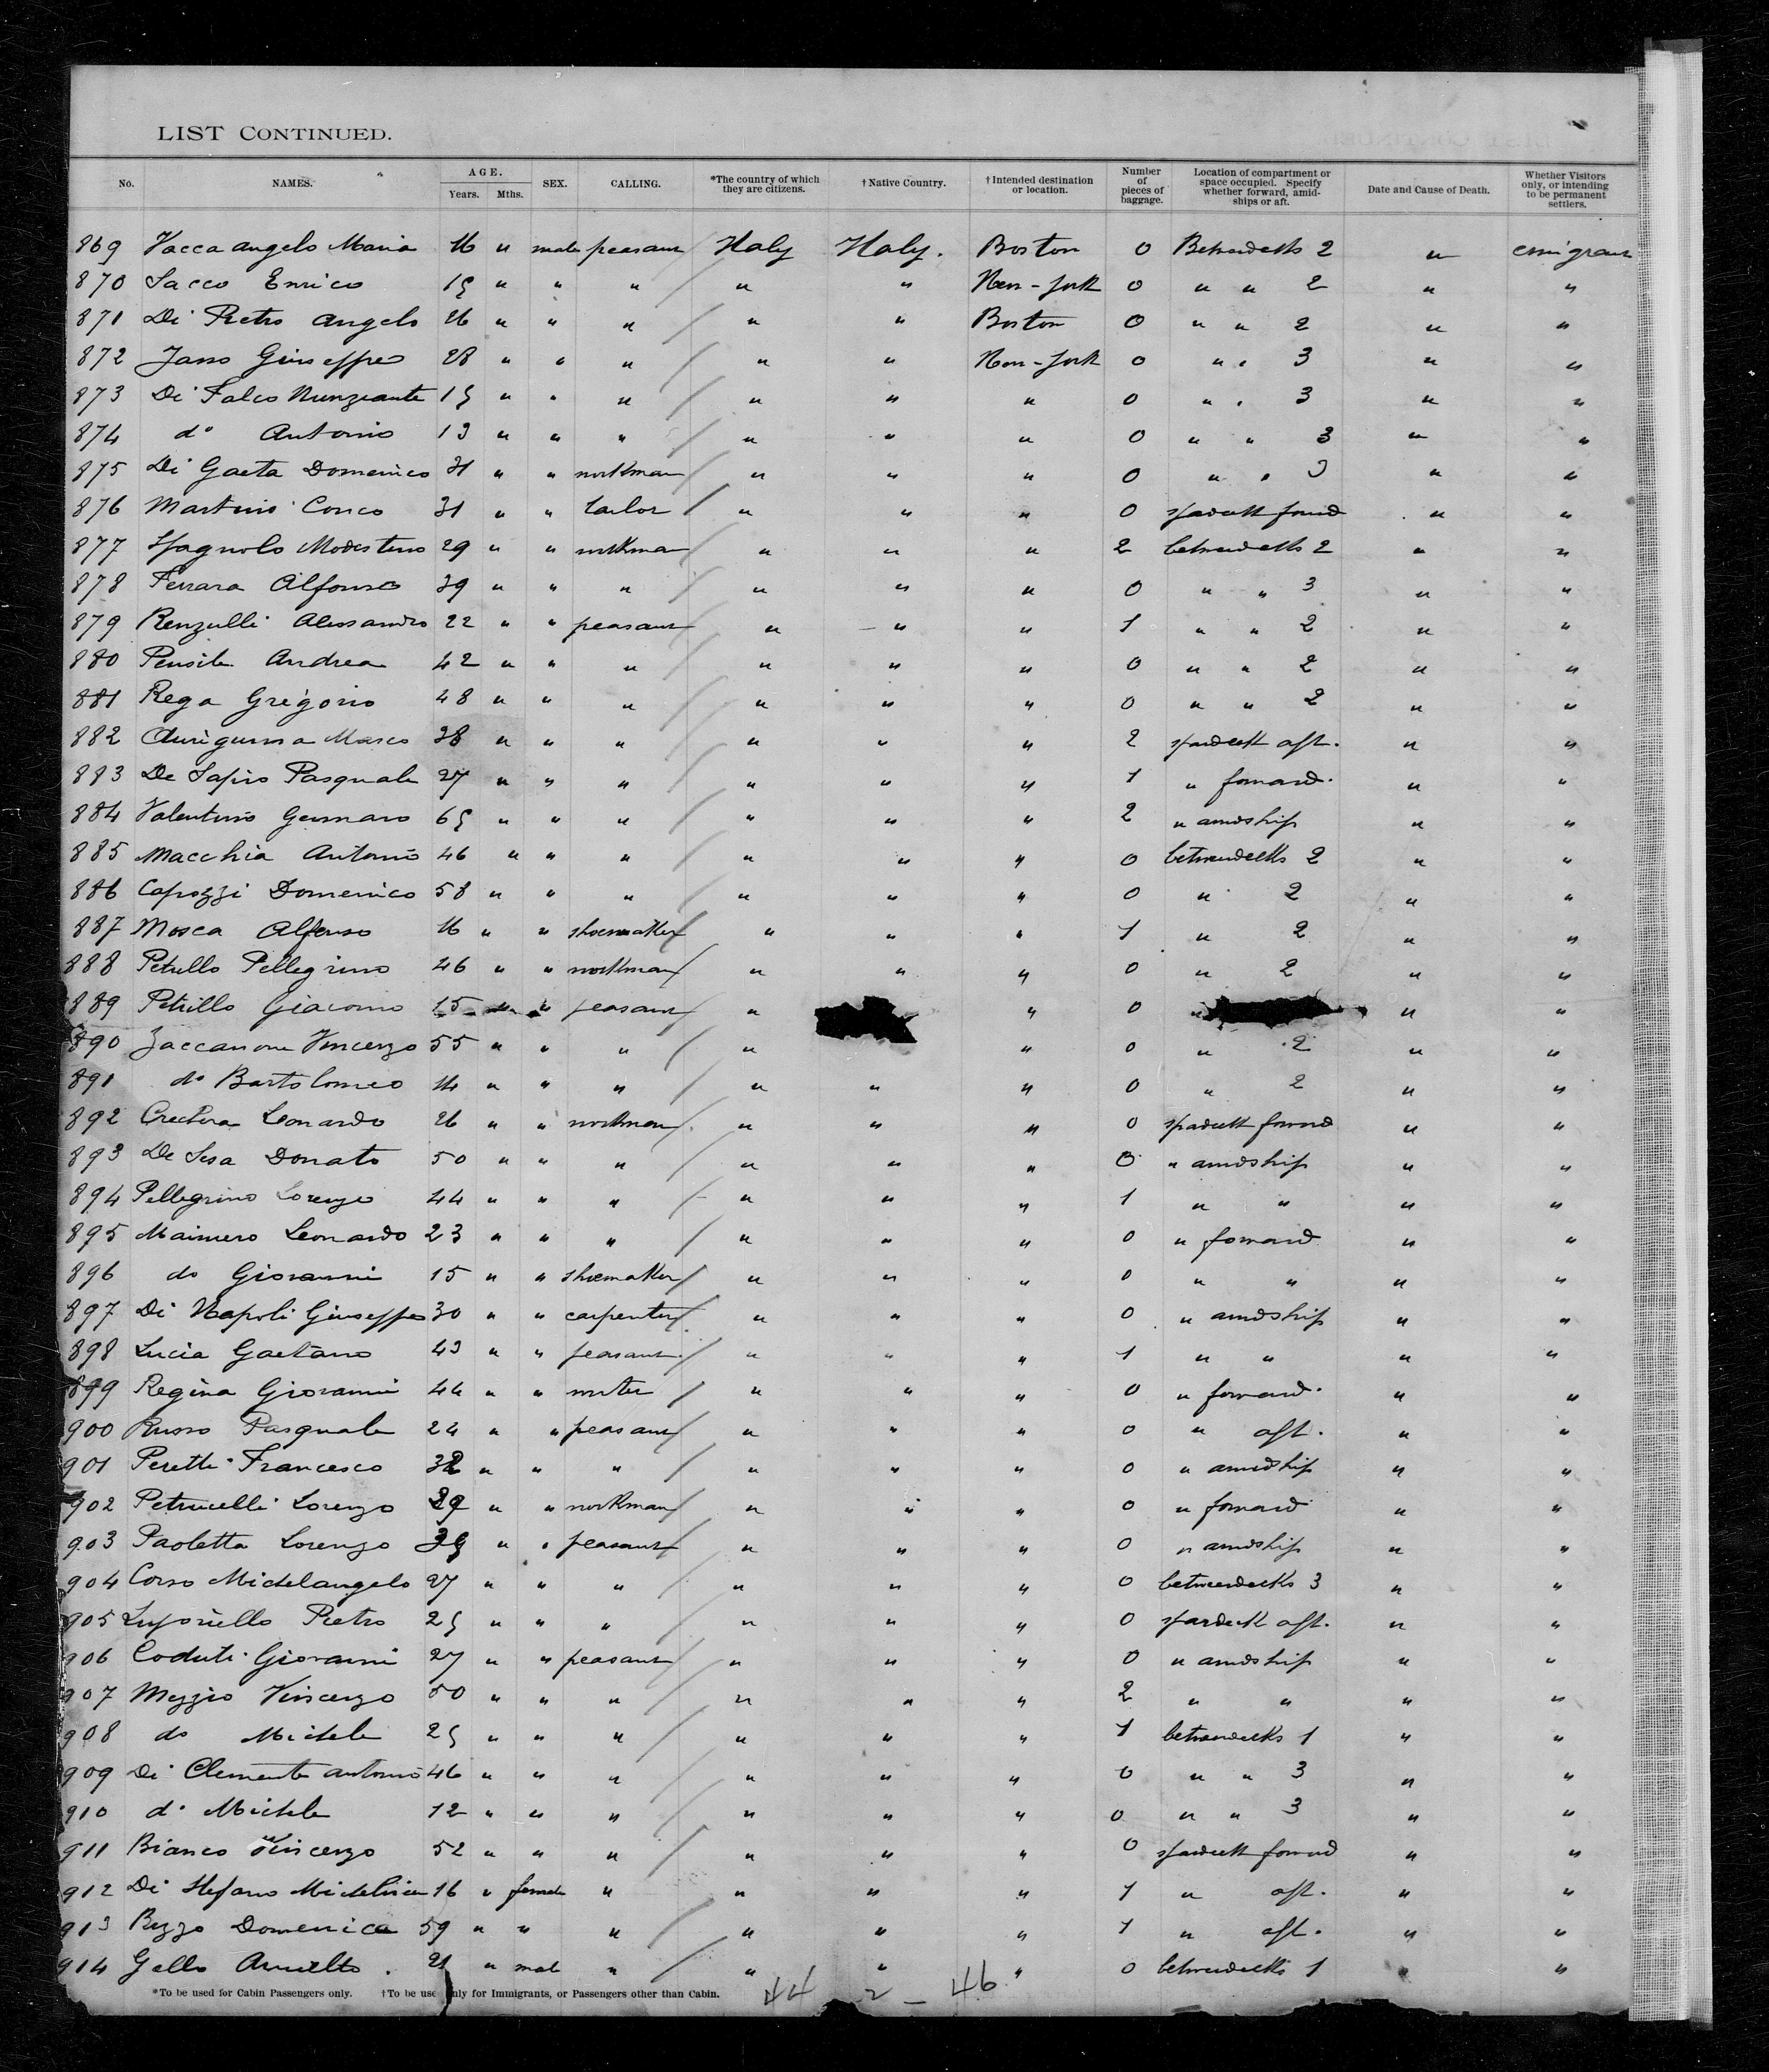 LIST CONTINUED.
No. NAMES. AGE. Years. Mths. SEX. CALLING. *The country of which they are citizens. †Native Country. †Intended destination or location. Number of pieces of baggage. Location of compartment or space occupied. Specify whether forward, amidships or aft. Date and Cause of Death. Whether Visitors only, or intending to be permanent settlers.
869 Vacca Angelo Maria 16 " male peasant Italy Italy. Boston 0 Betwedecks 2 " emigrant
870 Sacco Enrico 15 " " " " " New-York 0 " " 2 " "
871 Di Pietro Angelo 26 " " " " " Boston 0 " " 2 " "
872 Giuseppe 28 " " " " " New-York 0 " " 3 " "
873 Di Falco Nunziante 15 " " " " " " 0 " " 3 " "
874 do Antonio 13 " " " " " " 0 " " 3 " "
875 Di Gaeta Domenico 31 " " workman " " " 0 " " 3 " "
876 Martino 31 " " tailor " " " 0 spardeck forwd " "
877 Spagnolo Modestino 29 " " workman " " " 2 betwendecks 2 " "
878 Ferrara Alfonso 39 " " " " " " 0 " " 3 " "
879 Renzulli Alessandro 22 " " peasant " " " 1 " " 2 " "
880 Andrea 42 " " " " " " 0 " " 2 " "
881 Rega Gregorio 48 " " " " " " 0 " " 2 " "
882 Marco 38 " " " " " " 2 spardeck aft. " "
883 De Sapio Pasquale 27 " " " " " " 1 " forward. " "
884 Valentino Gennaro 65 " " " " " " 2 " amidship " "
885 Macchia Antonio 46 " " " " " " 0 betwendecks 2 " "
886 Capozzi Domenico 58 " " " " " " 0 " 2 " "
887 Mosca Alfonso 16 " " shoemaker " " " 1 " 2 " "
888 Petrillo Pellegrino 46 " " workman " " " 0 " 2 " "
889 Petrillo Giacomo 15 " " peasant " " 0 " " "
890 Zaccanone Vincenzo 55 " " " " " 0 " 2 " "
891 do Bartolomeo 14 " " " " " " 0 " 2 " "
892 Leonardo 26 " " workman " " " 0 spardeck forwd " "
893 De Sesa Donato 50 " " " " " " 0 " amidship " "
894 Pellegrino Lorenzo 44 " " " " " " 1 " " " "
895 Mainiero Leonardo 23 " " " " " " 0 " forward " "
896 do Giovanni 15 " " shoemaker " " " 0 " " " "
897 Di Napoli Giuseppe 30 " " carpenter " " " 0 " amidship " "
898 Lucia Gaetano 43 " " peasant " " " 1 " " " "
899 Regina Giovanni 44 " " " " " 0 " forward. " "
900 Russo Pasquale 24 " " peasant " " " 0 " aft. " "
901 Peretti Francesco 32 " " " " " " 0 " amidship " "
902 Petrucelli Lorenzo 29 " " workman " " " 0 " forward " "
903 Paoletta Lorenzo 35 " " peasant " " " 0 " amidship " "
904 Corso Michelangelo 27 " " " " " " 0 betweendecks 3 " "
905 Pietro 25 " " " " " " 0 spardeck aft. " "
906 Coduti Giovanni 27 " " peasant " " " 0 " amidship " "
907 Mezzio Vincenzo 50 " " " " " " 2 " " " "
908 do Michele 25 " " " " " " 1 betwendecks 1 " "
909 Di Clemente Antonio 46 " " " " " " 0 " " 3 " "
910 do Michele 12 " " " " " " 0 " " 3 " "
911 Bianco Vincenzo 52 " " " " " " 0 spardeck forwd " "
912 Di Stefano Michelina 16 " female " " " " 1 " aft. " "
913 Rizzo Domenica 59 " " " " " " 1 " aft. " "
914 Gallo Aniello. 21 " male " " " " 0 betwendecks 1 " "
*To be used for Cabin Passengers only. †To be used only for Immigrants, or Passengers other than Cabin. 44 2 - 46